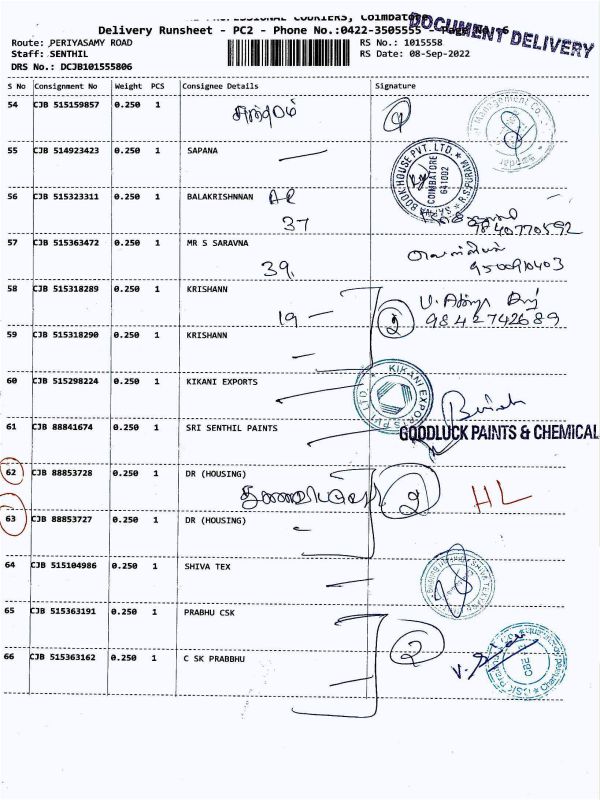 PROFESSIONAL COURIERS, Coimbatore
Delivery Runsheet - PC2 - Phone No.:0422-3505555 - Page No. 6
DOCUMENT DELIVERY
Route: PERIYASAMY ROAD RS No.: 1015558
Staff: SENTHIL RS Date: 08-Sep-2022
DRS No.: DCJB101555806
S No Consignment No Weight PCS Consignee Details Signature
54 CJB 515159857 0.250 1
55 CJB 514923423 0.250 1 SAPANA
BOOK HOUSE PVT. LTD. COIMBATORE 641002
56 CJB 515323311 0.250 1 BALAKRISHNNAN
37 9840770592
57 CJB 515363472 0.250 1 MR S SARAVNA
39.
58 CJB 515318289 0.250 1 KRISHANN
19 2 9842742689
59 CJB 515318290 0.250 1 KRISHANN
60 CJB 515298224 0.250 1 KIKANI EXPORTS
KIKANI EXPORTS PVT LTD.
61 CJB 88841674 0.250 1 SRI SENTHIL PAINTS
GOODLUCK PAINTS & CHEMICAL
62 CJB 88853728 0.250 1 DR (HOUSING)
2 HL
63 CJB 88853727 0.250 1 DR (HOUSING)
64 CJB 515104986 0.250 1 SHIVA TEX
65 CJB 515363191 0.250 1 PRABHU CSK
2
66 CJB 515363162 0.250 1 C SK PRABBHU
CBE